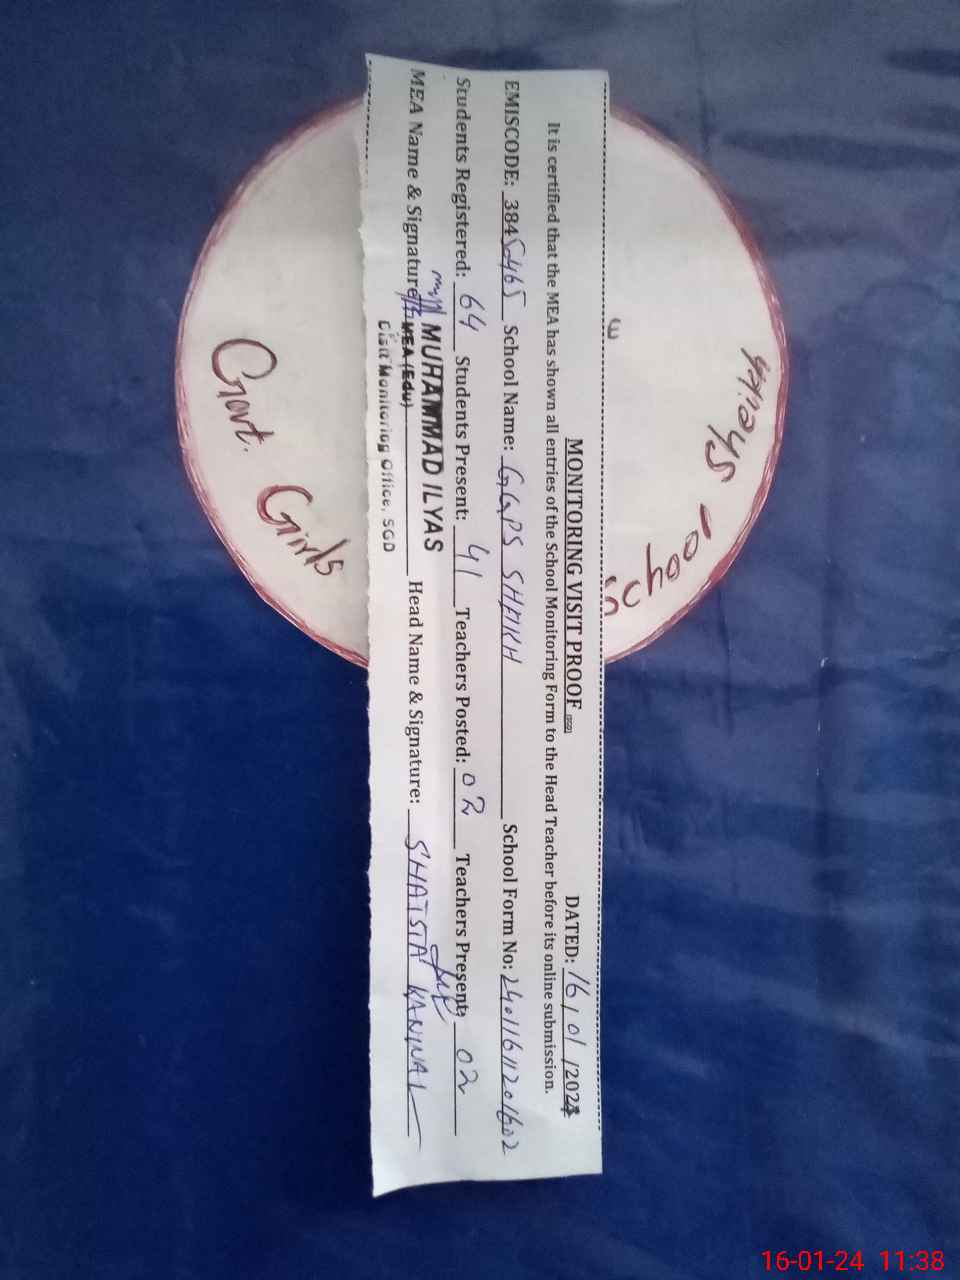 MONITORING VISIT PROOF DATED: 16/01/2024
It is certified that the MEA has shown all entries of the School Monitoring Form to the Head Teacher before its online submission.
EMISCODE: 3845465 School Name: GGPS SHAIKH School Form No: 24011611201602
Students Registered: 64 Students Present: 41 Teachers Posted: 02 Teachers Present: 02
MEA Name & Signature MUHAMMAD ILYAS Head Name & Signature: SHAISTA KANWAL
MEA (Edu)
Distt Monitoring Office, SGD
Govt. Girls
School Sheikh
16-01-24 11:38